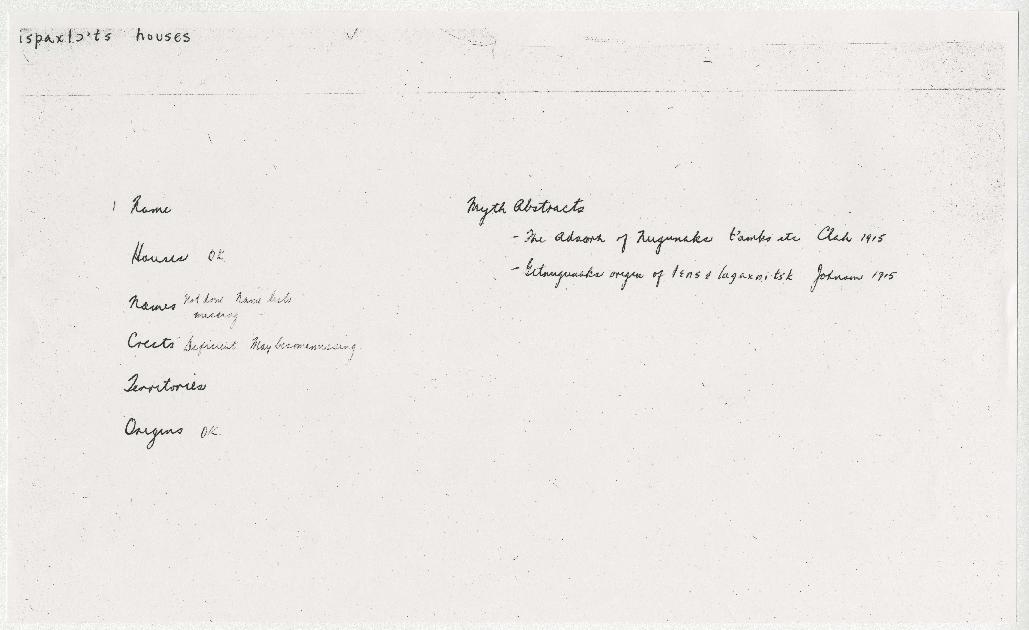 ispaxlɔ'ts houses ✓
1 Name
Houses OK
Names Not done Name lists
missing
Crests Deficient May be some missing
Territories
Origins OK
Myth Abstracts
- The Adaorh of Nugunaks t'ambs etc Clah 1915
- Gitnugunaks origin of lagaxnitsk Johnson 1915